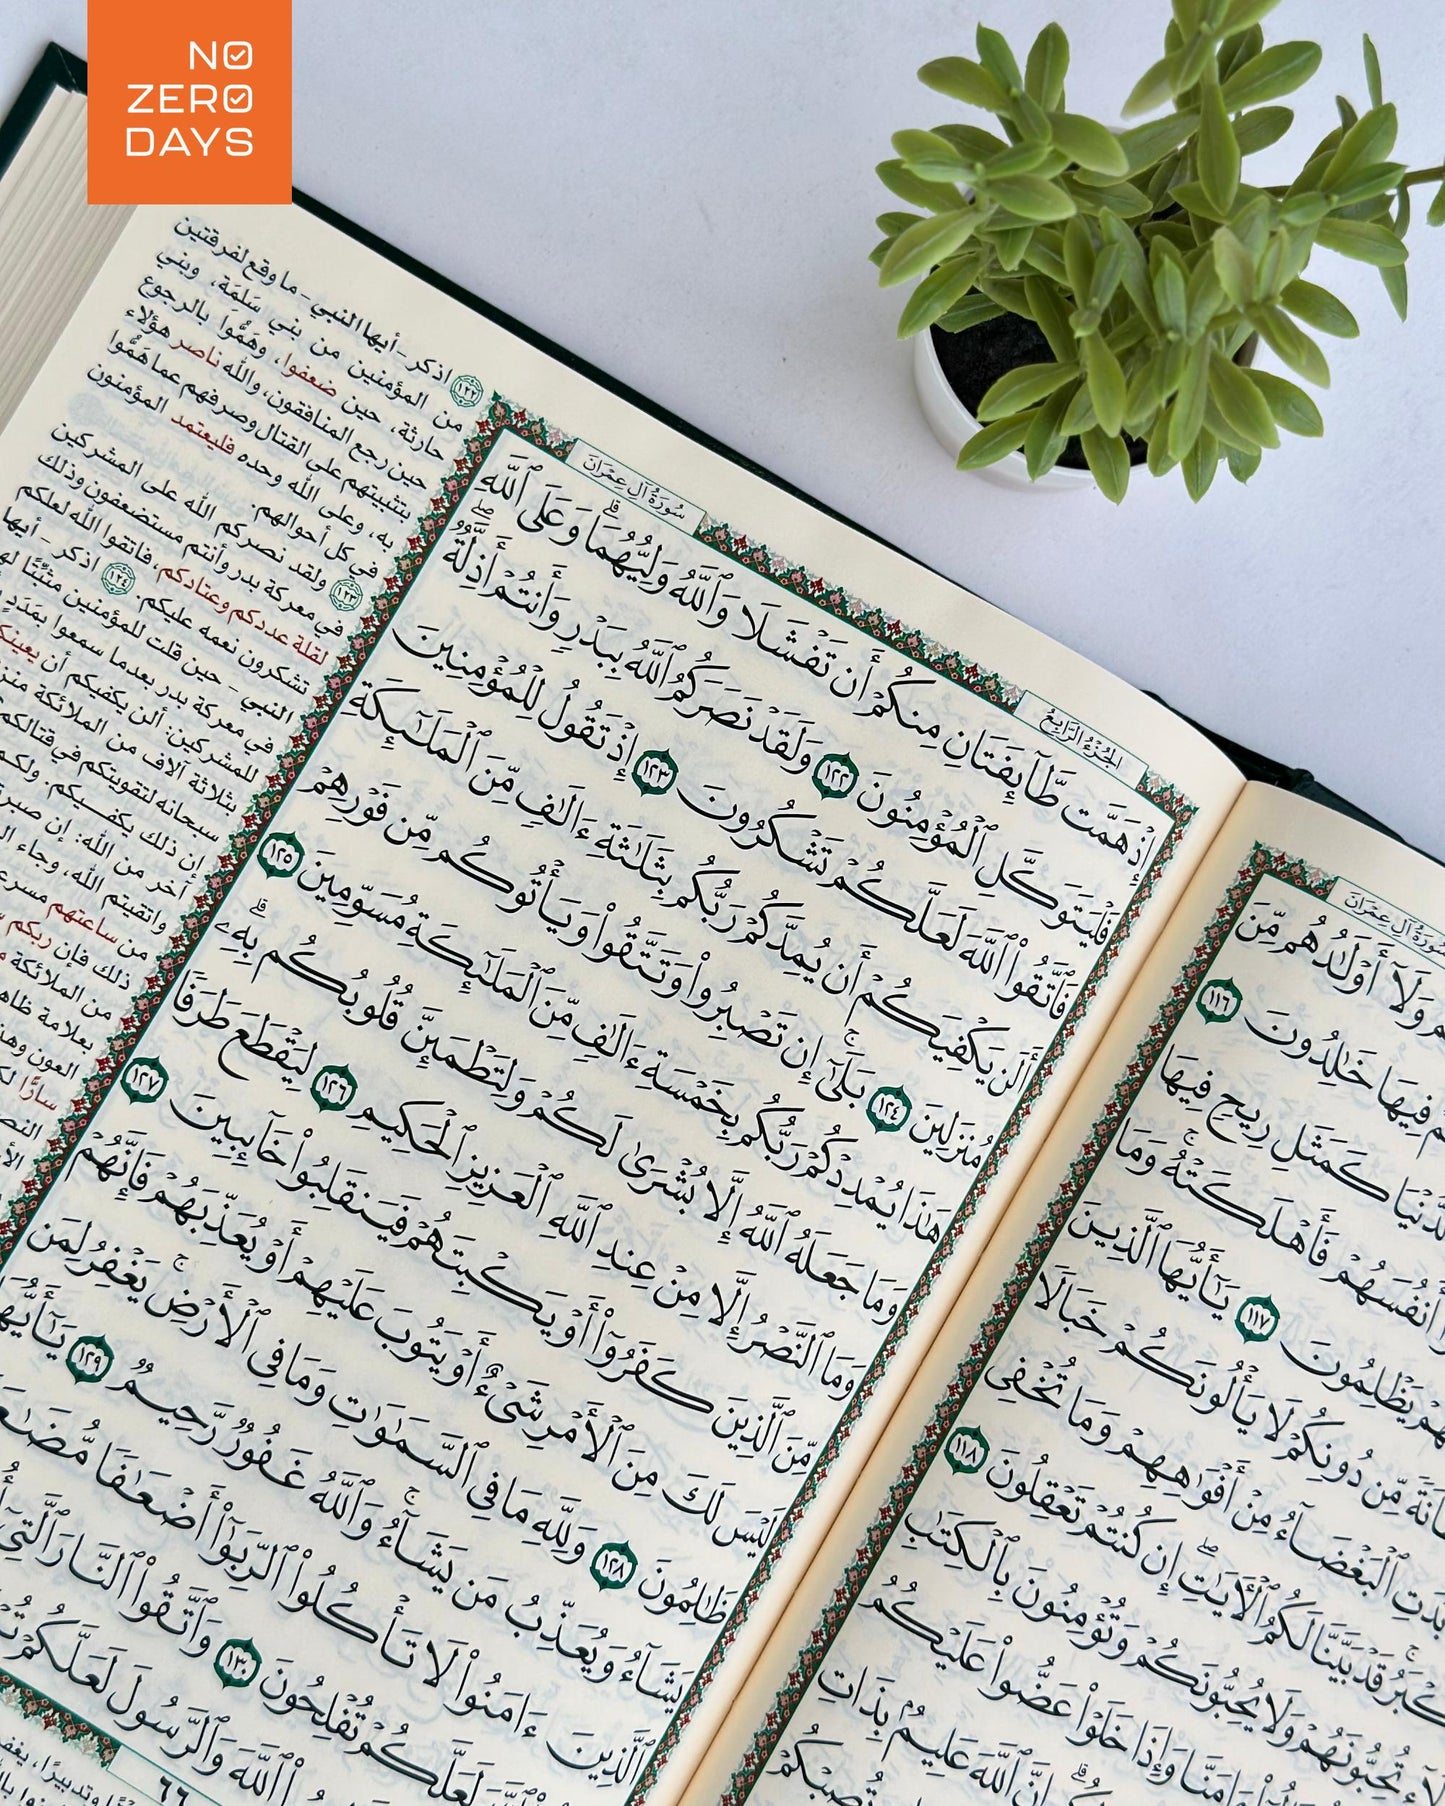 NO
ZERO
DAYS
١٢٢ اذكر - أيها النبي - ما وقع لفرقتين
من المؤمنين من بني سَلِمَة، وبني
حارثة، حين ضعفوا، وهَمُّوا بالرجوع
حين رجع المنافقون، والله ناصر هؤلاء
بتثبيتهم على القتال وصرفهم عما هَمُّوا
به، وعلى الله وحده فليعتمد المؤمنون
في كل أحوالهم.
١٢٣ ولقد نصركم الله على المشركين
في معركة بدر وأنتم مستضعفون وذلك
لقلة عددكم وعتادكم، فاتقوا الله لعلكم
تشكرون نعمه عليكم. ١٢٤ اذكر - أيها
النبي - حين قلت للمؤمنين مثبِّتًا
في معركة بدر بعدما سمعوا بمَدَدٍ
للمشركين: ألن يكفيكم أن يعينكم
بثلاثة آلاف من الملائكة
سبحانه لتقويتكم في قتالكم
إن ذلك يكفيكم. ولكم
آخر من الله: إن صبرتم
واتقيتم الله، وجاء
من ساعتهم
ذلك فإن ربكم
من الملائكة
بعلامة
العون
سارًّا
سُورَةُ آلِ عِمْرَانَ
الجُزْءُ الرَّابِعُ
إِذْ هَمَّت طَّآئِفَتَانِ مِنكُمْ أَن تَفْشَلَا وَٱللَّهُ وَلِيُّهُمَاۗ وَعَلَى ٱللَّهِ
فَلْيَتَوَكَّلِ ٱلْمُؤْمِنُونَ ١٢٢ وَلَقَدْ نَصَرَكُمُ ٱللَّهُ بِبَدْرٍ وَأَنتُمْ أَذِلَّةٌۖ
فَٱتَّقُوا۟ ٱللَّهَ لَعَلَّكُمْ تَشْكُرُونَ ١٢٣ إِذْ تَقُولُ لِلْمُؤْمِنِينَ
أَلَن يَكْفِيَكُمْ أَن يُمِدَّكُمْ رَبُّكُم بِثَلَٰثَةِ ءَالَٰفٍ مِّنَ ٱلْمَلَٰٓئِكَةِ
مُنزَلِينَ ١٢٤ بَلَىٰٓۚ إِن تَصْبِرُوا۟ وَتَتَّقُوا۟ وَيَأْتُوكُم مِّن فَوْرِهِمْ
هَٰذَا يُمْدِدْكُمْ رَبُّكُم بِخَمْسَةِ ءَالَٰفٍ مِّنَ ٱلْمَلَٰٓئِكَةِ مُسَوِّمِينَ ١٢٥
وَمَا جَعَلَهُ ٱللَّهُ إِلَّا بُشْرَىٰ لَكُمْ وَلِتَطْمَئِنَّ قُلُوبُكُم بِهِۦۗ
وَمَا ٱلنَّصْرُ إِلَّا مِنْ عِندِ ٱللَّهِ ٱلْعَزِيزِ ٱلْحَكِيمِ ١٢٦ لِيَقْطَعَ طَرَفًا
مِّنَ ٱلَّذِينَ كَفَرُوٓا۟ أَوْ يَكْبِتَهُمْ فَيَنقَلِبُوا۟ خَآئِبِينَ ١٢٧
لَيْسَ لَكَ مِنَ ٱلْأَمْرِ شَىْءٌ أَوْ يَتُوبَ عَلَيْهِمْ أَوْ يُعَذِّبَهُمْ فَإِنَّهُمْ
ظَٰلِمُونَ ١٢٨ وَلِلَّهِ مَا فِى ٱلسَّمَٰوَٰتِ وَمَا فِى ٱلْأَرْضِۚ يَغْفِرُ لِمَن
يَشَآءُ وَيُعَذِّبُ مَن يَشَآءُۚ وَٱللَّهُ غَفُورٌ رَّحِيمٌ ١٢٩ يَٰٓأَيُّهَا
ٱلَّذِينَ ءَامَنُوا۟ لَا تَأْكُلُوا۟ ٱلرِّبَوٰٓا۟ أَضْعَٰفًا مُّضَٰعَفَةً
لَعَلَّكُمْ تُفْلِحُونَ ١٣٠ وَٱتَّقُوا۟ ٱلنَّارَ ٱلَّتِىٓ
ٱللَّهَ وَٱلرَّسُولَ لَعَلَّكُمْ
٦٦
سُورَةُ آلِ عِمْرَانَ
وَلَآ أَوْلَٰدُهُم مِّنَ
فِيهَا خَٰلِدُونَ ١١٦
كَمَثَلِ رِيحٍ فِيهَا
أَنفُسَهُمْ فَأَهْلَكَتْهُۚ وَمَا
يَظْلِمُونَ ١١٧ يَٰٓأَيُّهَا ٱلَّذِينَ
مِّن دُونِكُمْ لَا يَأْلُونَكُمْ خَبَالًا
بَدَتِ ٱلْبَغْضَآءُ مِنْ أَفْوَٰهِهِمْ وَمَا تُخْفِى
قَدْ بَيَّنَّا لَكُمُ ٱلْءَايَٰتِۖ إِن كُنتُمْ تَعْقِلُونَ ١١٨
تُحِبُّونَهُمْ وَلَا يُحِبُّونَكُمْ وَتُؤْمِنُونَ بِٱلْكِتَٰبِ
ءَامَنَّا وَإِذَا خَلَوْا۟ عَضُّوا۟ عَلَيْكُمُ
إِنَّ ٱللَّهَ عَلِيمٌۢ بِذَاتِ
تُصِبْكُمْ